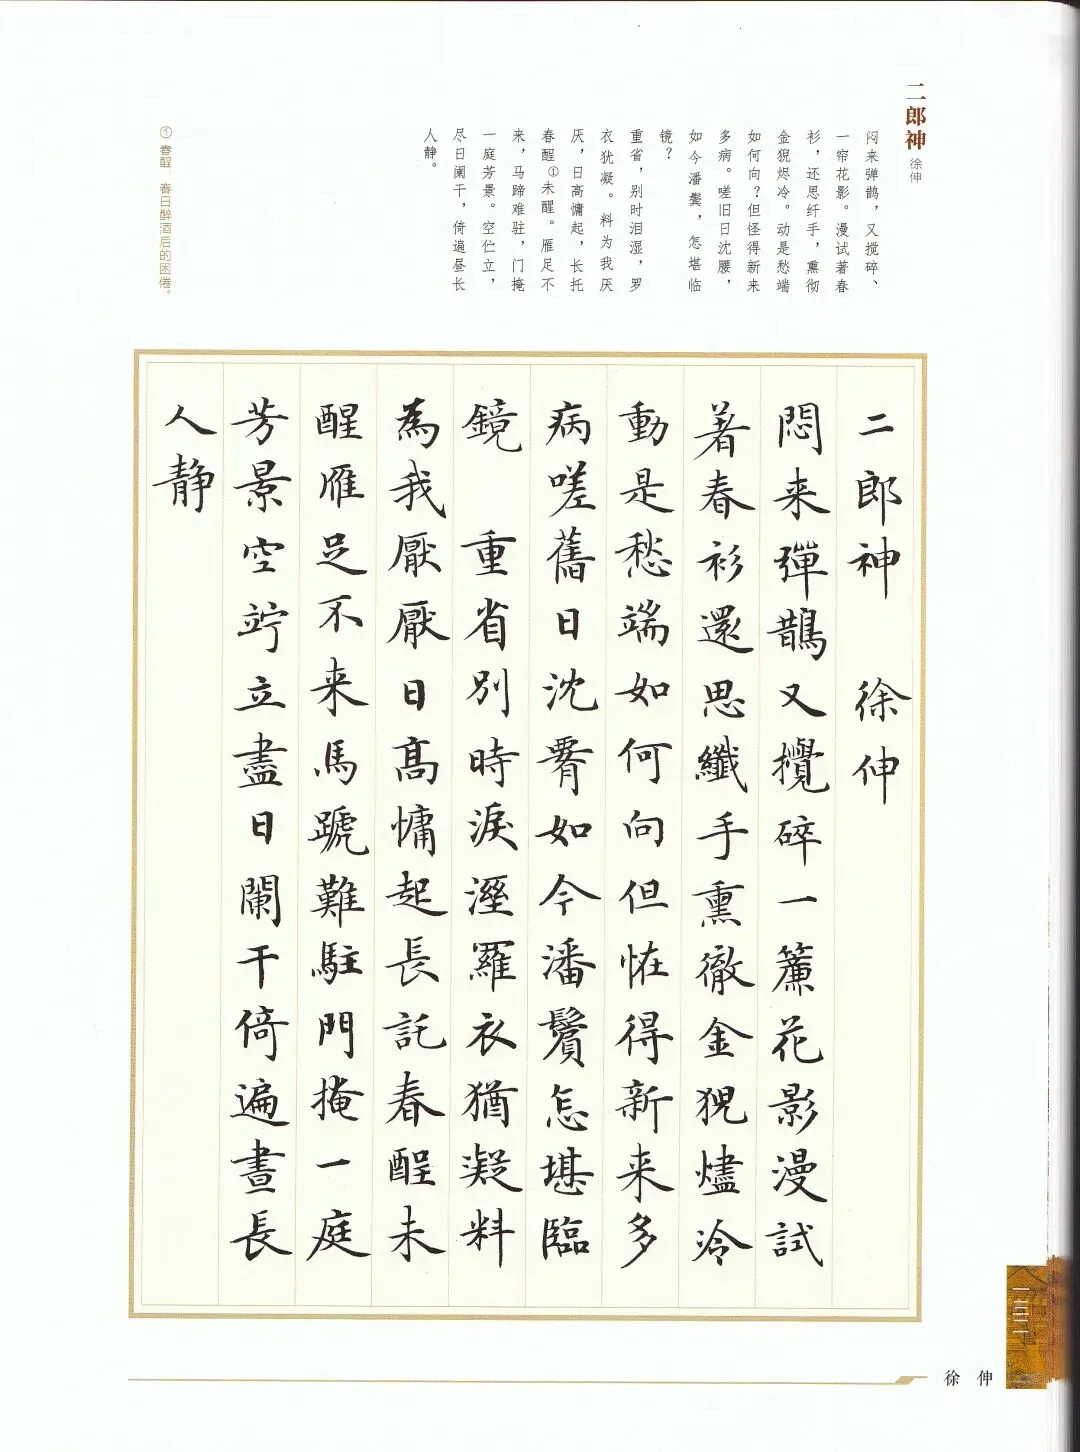 二郎神
徐伸
闷来弹鹊，又搅碎、
一帘花影。漫试著春
衫，还思纤手，熏彻
金猊烬冷。动是愁端
如何向？但怪得新来
多病。嗟旧日沈腰，
如今潘鬓，怎堪临
镜？
重省，别时泪湿，罗
衣犹凝。料为我厌
厌，日高慵起，长托
春酲①未醒。雁足不
来，马蹄难驻，门掩
一庭芳景。空伫立，
尽日阑干，倚遍昼长
人静。
① 春酲：春日醉酒后的困倦。
二郎神 徐伸
悶来彈鵲又攪碎一簾花影漫試
著春衫還思纖手熏徹金猊燼冷
動是愁端如何向但恠得新来多
病嗟舊日沈腰如今潘鬢怎堪臨
鏡 重省別時淚溼羅衣猶凝料
為我厭厭日高慵起長託春酲未
醒雁足不来馬蹏難駐門掩一庭
芳景空竚立盡日闌干倚遍晝長
人静
徐伸
一三二